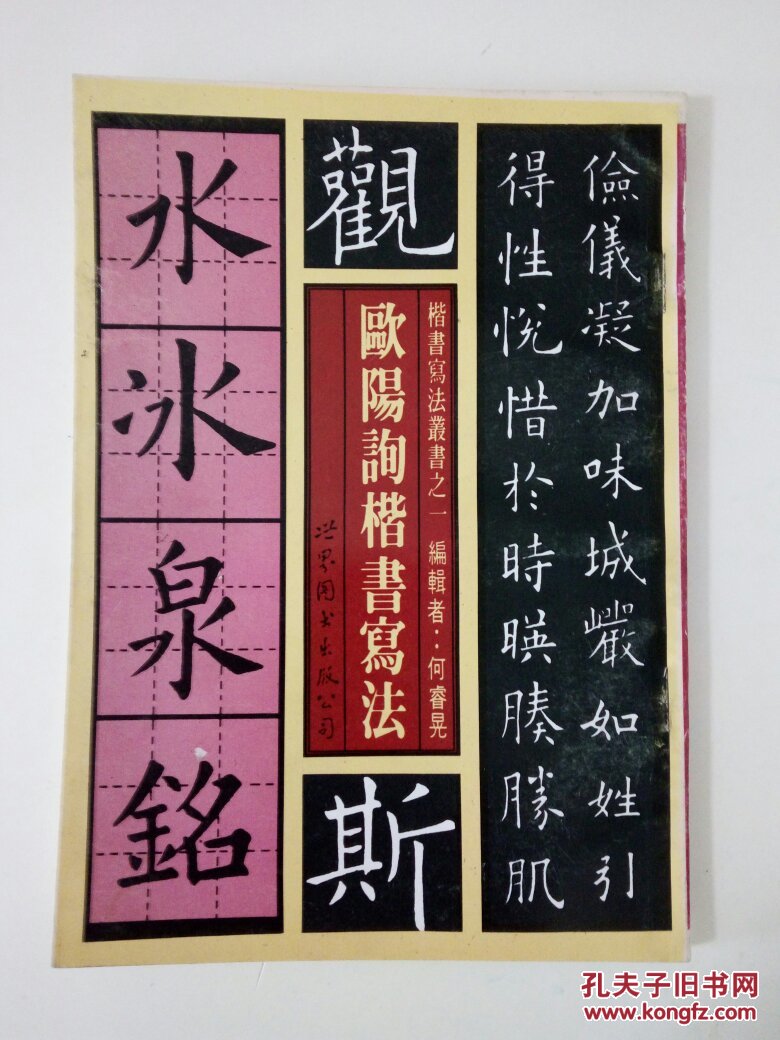 儉儀凝加味城巖如姓引
得性悅惜於時暎腠勝肌
觀
楷書寫法叢書之一 編輯者：何睿晃
歐陽詢楷書寫法
世界图书出版公司
斯
水冰泉銘
孔夫子旧书网
www.kongfz.com